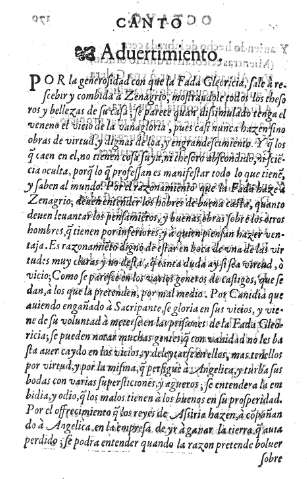 CANTO
Aduertimiento.
POR la generosidad con que la Fada Gleoricia, sale à re-
scebir y combida à Zenagrio, mostrãdole todos los theso
ros y bellezas de su casa; se parece quan dissimulado tenga el
veneno el vicio de la vanagloria, pues casi nunca hazen sino
obras de virtud, y dignas de loa, y engrandescimiento. Y q̃ los
q̃ caen en el, no tienen cosa suya, ni thesoro abscondido, ni sciẽ
cia oculta, porq̃ lo q̃ professan es manifestar todo lo que tienẽ,
y saben al mundo. Por el razonamiento que la Fada haze à
Zenagrio, deuen entender los hõbres de buena casta, quanto
deuen leuantar los pensamiẽtos, y buenas obras sobre los otros
hombres, q̃ tienen por inferiores, y à quien piensan hazer ven-
taja. Es razonamiẽto digno de estar en boca de vna de las vir
tudes muy claras y no desta, q̃ tanta duda ay si sea virtud, ò
vicio. Como se paresce en los varios generos de castigos, que se
dan, à los que la pretenden, por mal medio. Por Cunidia que
auiendo engañado à Sacripante, se gloria en sus vicios, y vie-
ne de su voluntad à meterse en las prisiones de la Fada Gleo-
ricia; se pueden notar muchas gentes, q̃ con vanidad no les ba
sta auer caydo en los vicios, y deleytarse en ellos, mas tenellos
por virtud, y por la misma, q̃ persigue à Angelica, y turbà sus
bodas con varias supersticiones, y agueros; se entendera la em
bidia, y odio, q̃ los malos tienen à los buenos en su prosperidad.
Por el offrecimiento q̃ los reyes de Assiria hazen, à cõpañan
do à Angelica, en la empresa de yr à ganar la tierra, q̃ auia
perdido; se podra entender quando la razon pretende boluer
sobre